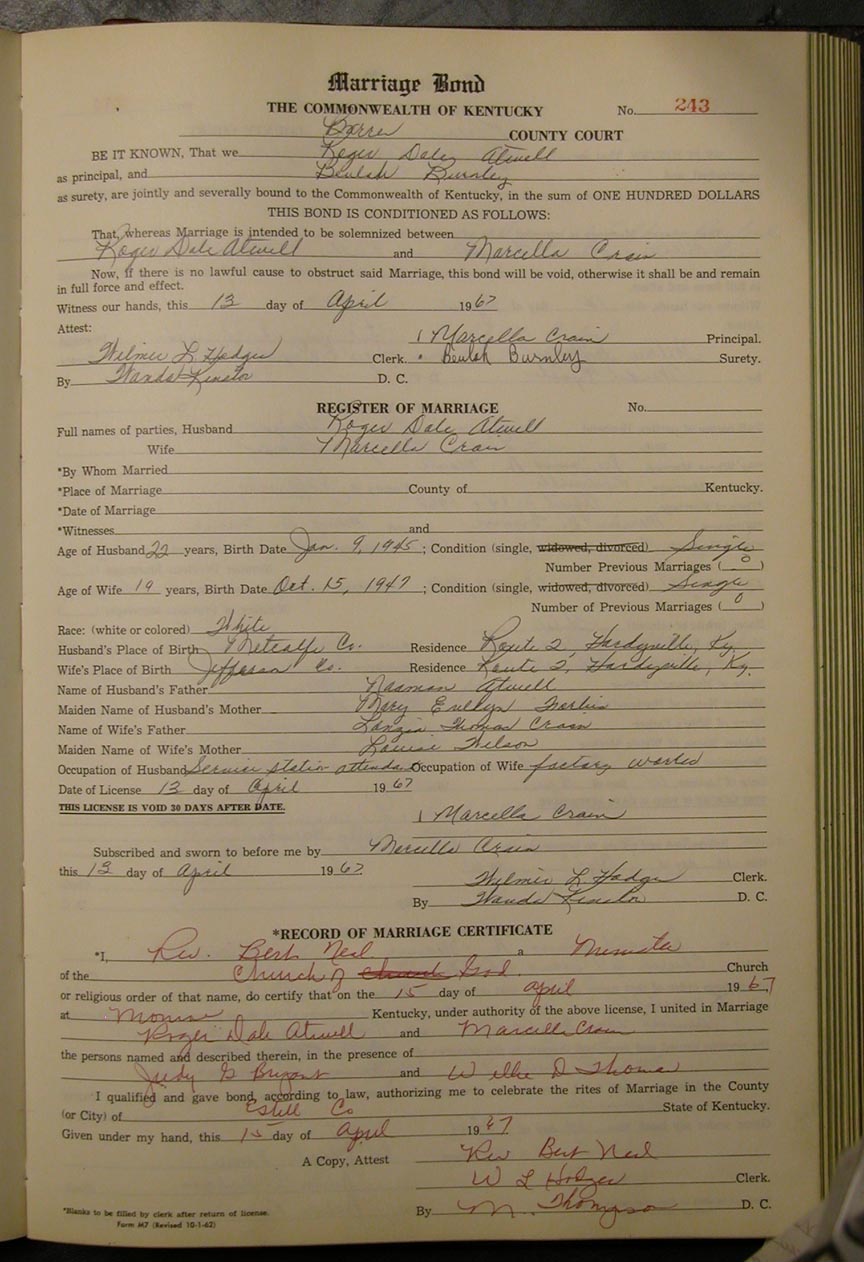 Marriage Bond
THE COMMONWEALTH OF KENTUCKY No. 243
Barren COUNTY COURT
BE IT KNOWN, That we Roger Dale Atwell
as principal, and Beulah Burnley
as surety, are jointly and severally bound to the Commonwealth of Kentucky, in the sum of ONE HUNDRED DOLLARS
THIS BOND IS CONDITIONED AS FOLLOWS:
That, whereas Marriage is intended to be solemnized between
Roger Dale Atwell and Marcella Crain
Now, if there is no lawful cause to obstruct said Marriage, this bond will be void, otherwise it shall be and remain
in full force and effect.
Witness our hands, this 13 day of April 1967
Attest:
Marcella Crain Principal.
Wilmer L. Hodges Clerk. Beulah Burnley Surety.
By Wanda D. C.
REGISTER OF MARRIAGE No.
Full names of parties, Husband Roger Dale Atwell
Wife Marcella Crain
*By Whom Married
*Place of Marriage County of Kentucky.
*Date of Marriage
*Witnesses and
Age of Husband 22 years, Birth Date Jan. 9, 1945; Condition (single, widowed, divorced) Single
Number Previous Marriages (0)
Age of Wife 19 years, Birth Date Oct. 15, 1947; Condition (single, widowed, divorced) Single
Number of Previous Marriages (0)
Race: (white or colored) White
Husband's Place of Birth Metcalfe Co. Residence Route 2, Hardyville, Ky.
Wife's Place of Birth Jefferson Co. Residence Route 2, Hardyville, Ky.
Name of Husband's Father Naaman Atwell
Maiden Name of Husband's Mother Mary Evelyn
Name of Wife's Father Thomas Crain
Maiden Name of Wife's Mother Louise Wilson
Occupation of Husband Service station attendant Occupation of Wife factory worker
Date of License 13 day of April 1967
THIS LICENSE IS VOID 30 DAYS AFTER DATE.
Marcella Crain
Subscribed and sworn to before me by Marcella Crain
this 13 day of April 1967
Wilmer L. Hodges Clerk.
By Wanda D. C.
*RECORD OF MARRIAGE CERTIFICATE
*I, Rev. Bert Neal a Minister
of the Church of Church God Church
or religious order of that name, do certify that on the 15 day of April 1967
at Monroe Kentucky, under authority of the above license, I united in Marriage
Roger Dale Atwell and Marcella Crain
the persons named and described therein, in the presence of
Judy G Bryant and Willie D Thomas
I qualified and gave bond, according to law, authorizing me to celebrate the rites of Marriage in the County
(or City) of Estill Co State of Kentucky.
Given under my hand, this 15 day of April 1967
A Copy, Attest Rev Bert Neal
W L Hodges Clerk.
*Blanks to be filled by clerk after return of license.
By M. Thompson D. C.
Form M7 (Revised 10-1-62)